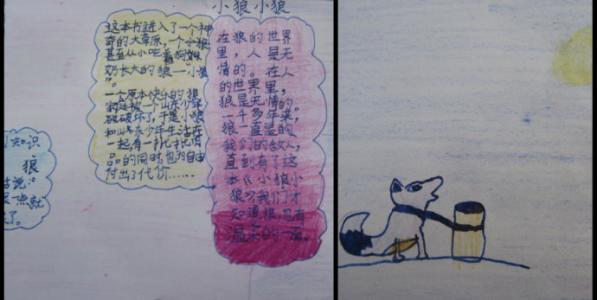 小狼小狼
这本书进入了一个神
奇的大草原,一个小狼
甚至从小吃着狗妈
奶长大的狼一小狼
一个原本快乐的狼
被破坏了,于是小狼
一起有一扎扎
品的同时,也为自由
付出了代价……
在狼的世界
里,人是无
情的。在人
的世界里,
狼是无情的。
一千多年来,
狼一直是的
我们的敌人,
直到有了这
本《小狼小
狼》我们才
知道狼也有
温柔的一面。
知识
狼
说:"
一点就
了。